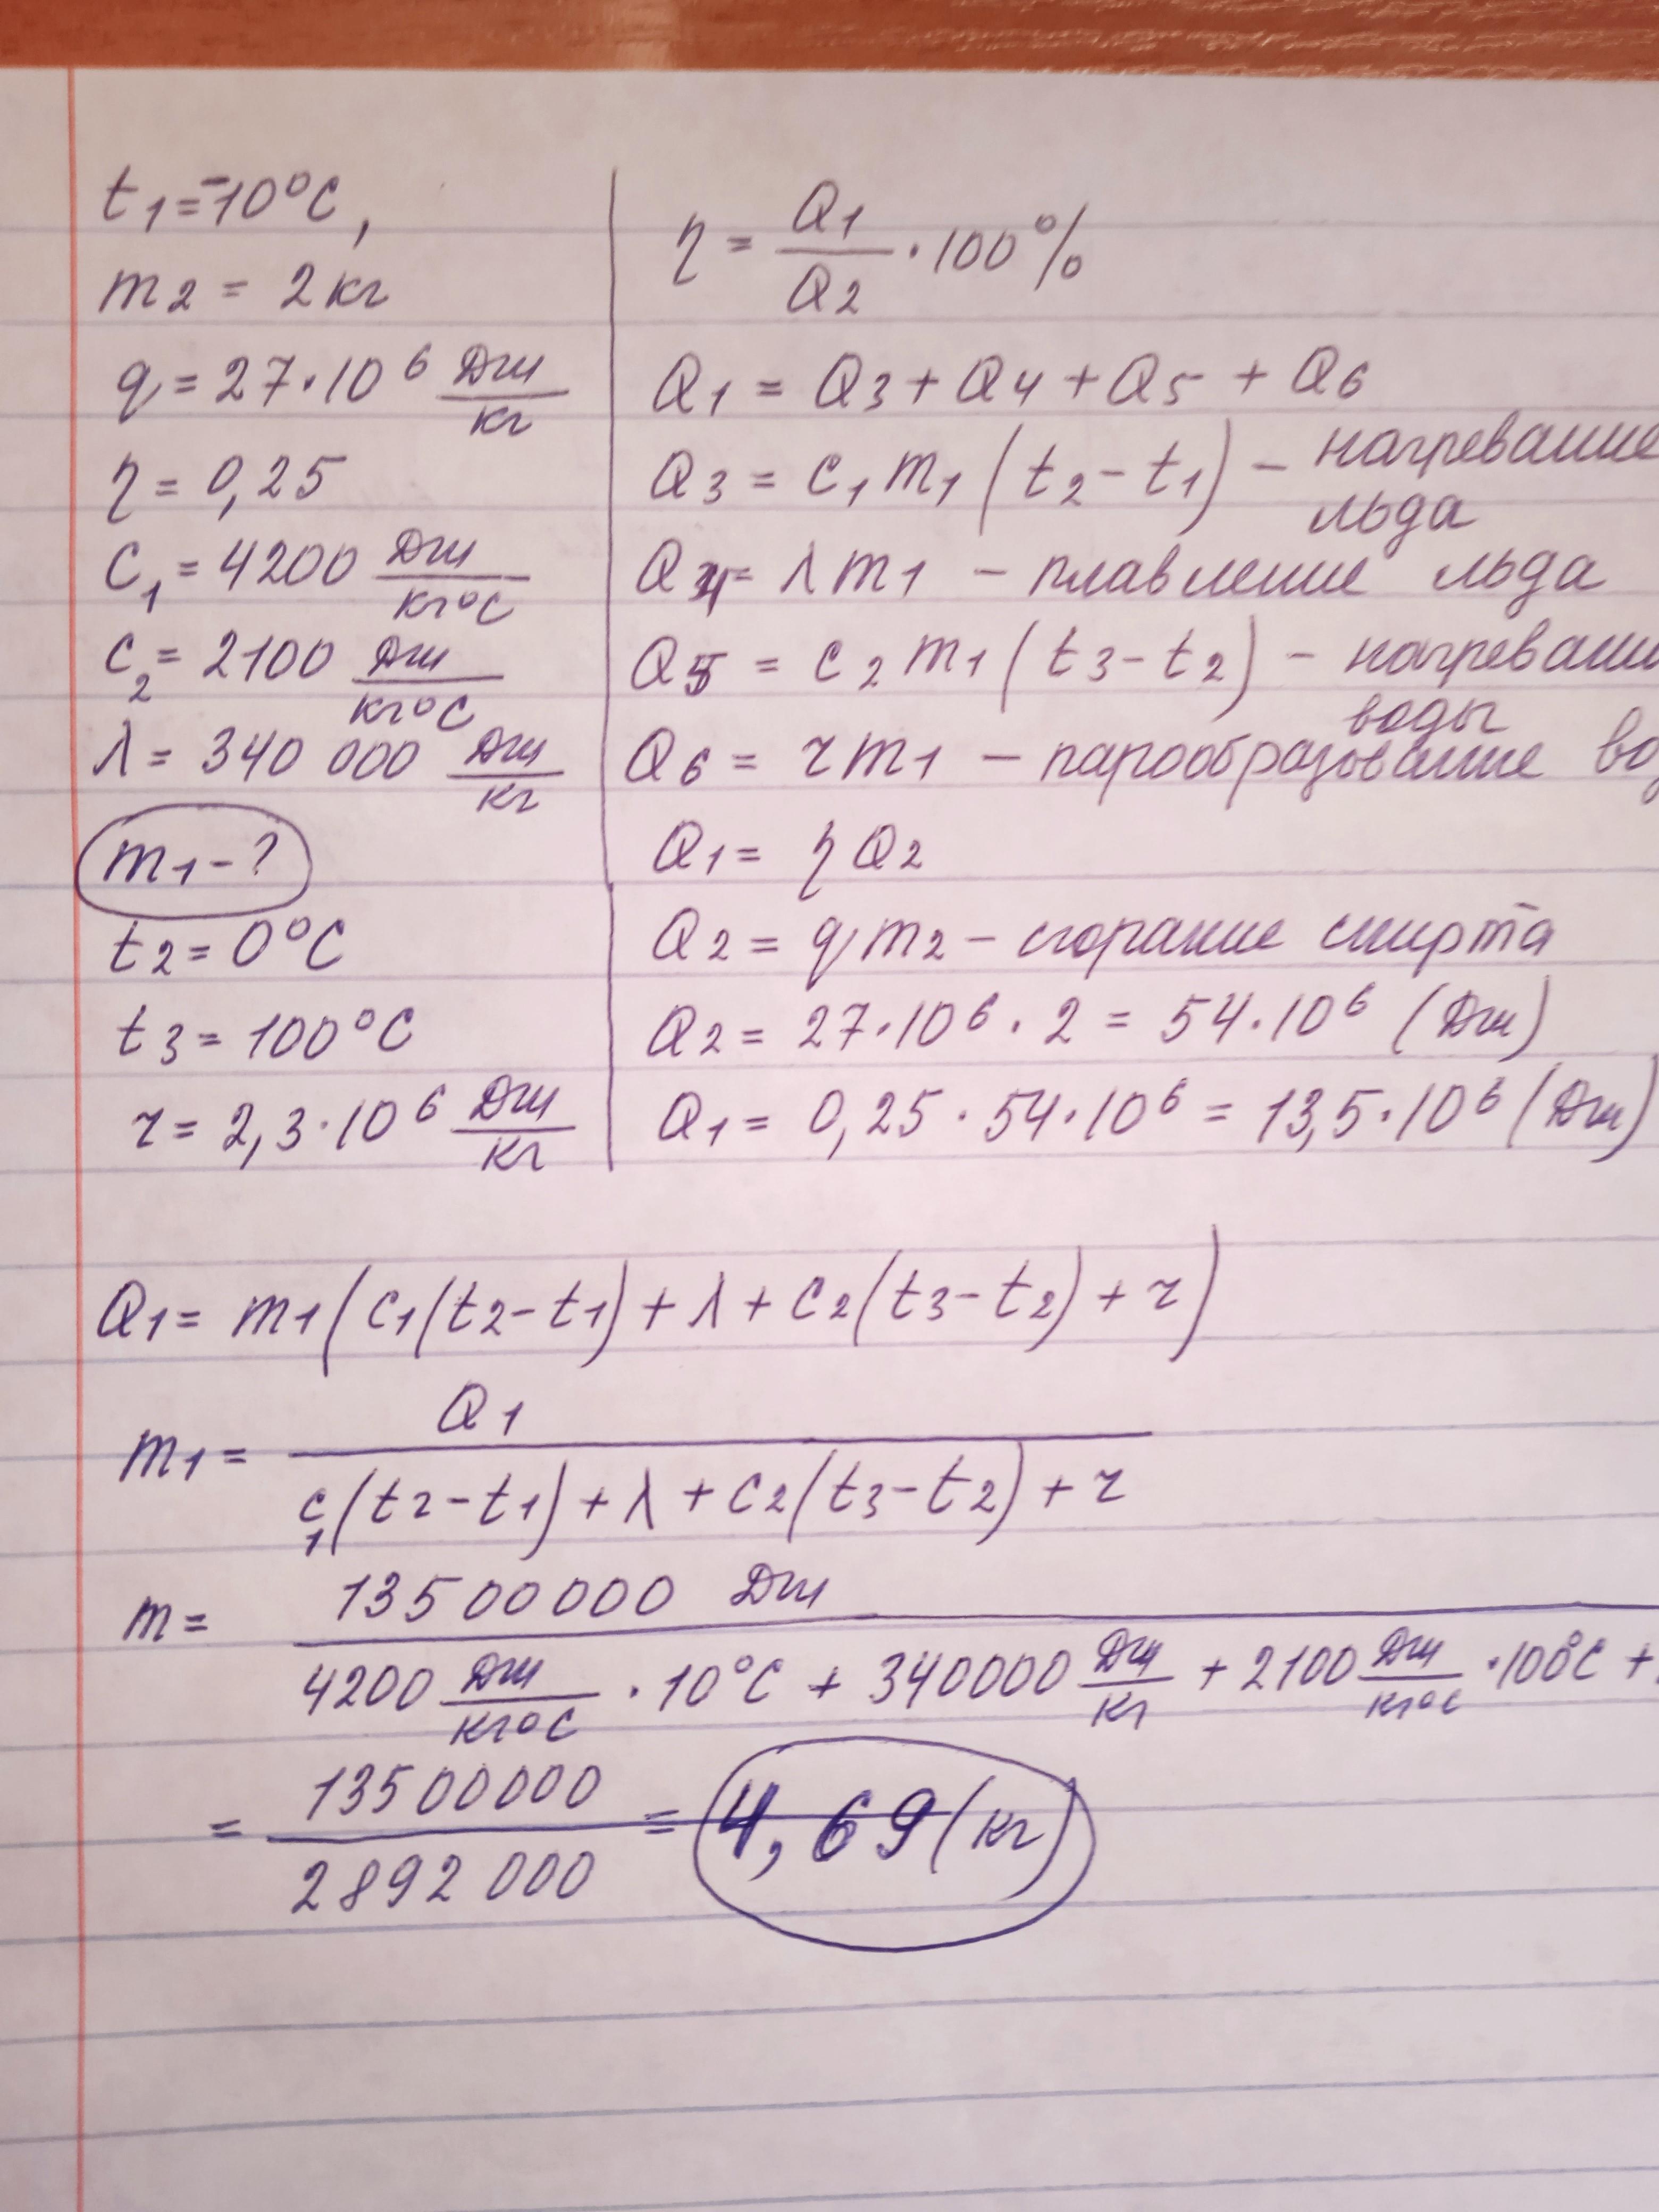 t₁ = -10°C,
m₂ = 2 кг
q = 27·10⁶ Дж/кг
η = 0,25
c₁ = 4200 Дж/кг°С
c₂ = 2100 Дж/кг°С
λ = 340 000 Дж/кг
m₁ - ?
t₂ = 0°C
t₃ = 100°C
r = 2,3·10⁶ Дж/кг
η = Q₁/Q₂ · 100%
Q₁ = Q₃ + Q₄ + Q₅ + Q₆
Q₃ = c₁m₁(t₂ - t₁) - нагревание
льда
Q₄ = λm₁ - плавление льда
Q₅ = c₂m₁(t₃ - t₂) -
воды
Q₆ = rm₁ - парообразование
Q₁ = ηQ₂
Q₂ = qm₂ - сгорание спирта
Q₂ = 27·10⁶·2 = 54·10⁶ (Дж)
Q₁ = 0,25·54·10⁶ = 13,5·10⁶ (Дж)
Q₁ = m₁(c₁(t₂ - t₁) + λ + c₂(t₃ - t₂) + r)
m₁ = Q₁/(c₁(t₂ - t₁) + λ + c₂(t₃ - t₂) + r)
m = 13500000 Дж
4200 Дж/кг°С · 10°С + 340000 Дж/кг + 2100 Дж/кг°С · 100°С +
= 13500000/2892000 = 4,69 (кг)